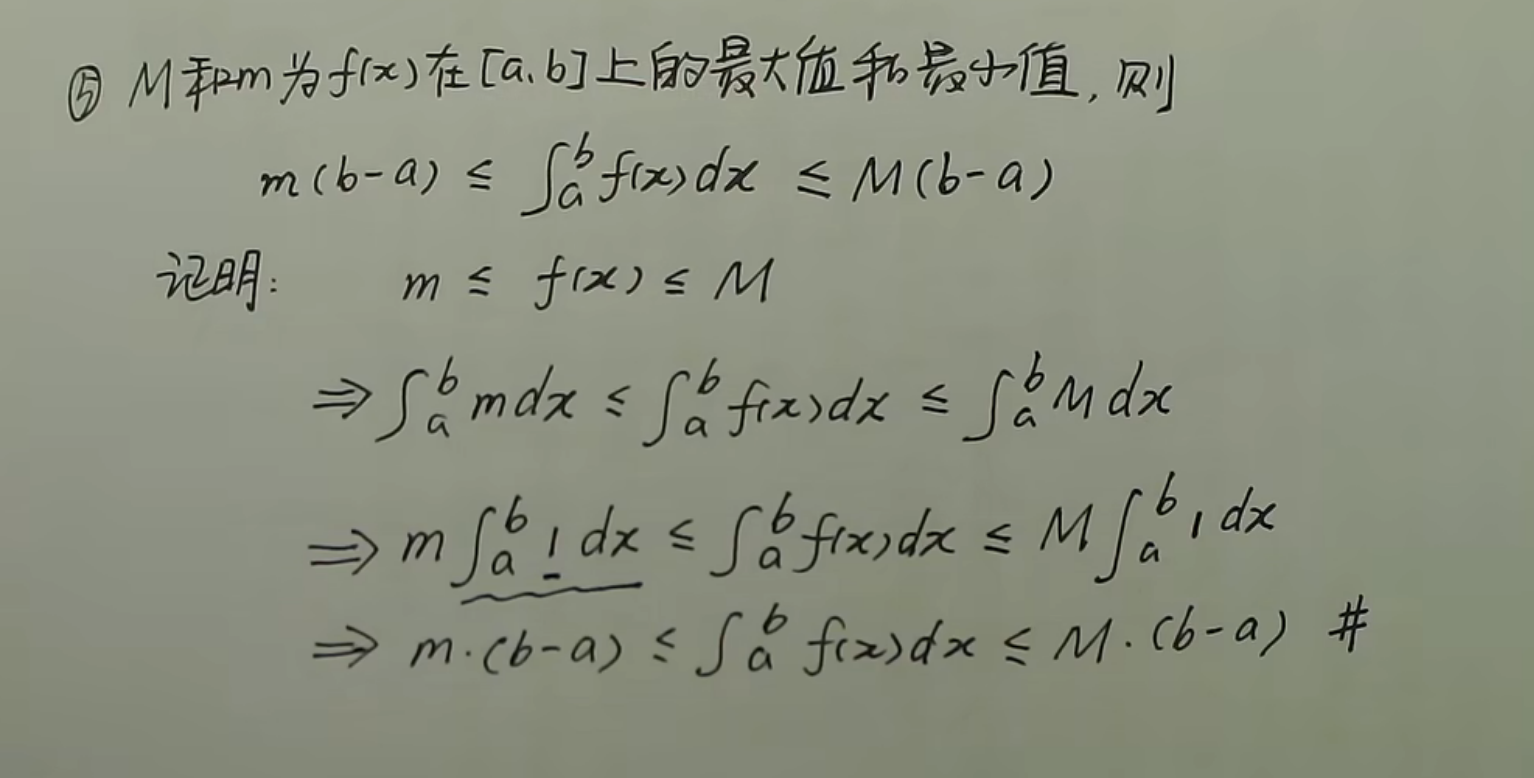 ⑤ M和m为f(x)在[a,b]上的最大值和最小值,则
m(b-a) ≤ ∫_a^b f(x)dx ≤ M(b-a)
证明: m ≤ f(x) ≤ M
⇒ ∫_a^b mdx ≤ ∫_a^b f(x)dx ≤ ∫_a^b Mdx
⇒ m∫_a^b 1dx ≤ ∫_a^b f(x)dx ≤ M∫_a^b 1dx
⇒ m·(b-a) ≤ ∫_a^b f(x)dx ≤ M·(b-a) #